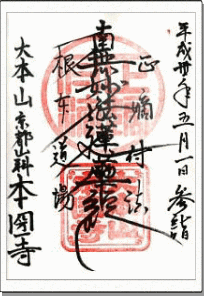 平成卅年五月一日参詣
正嫡付法
南無妙法蓮華経
根本道場
大本山京都山科本圀寺